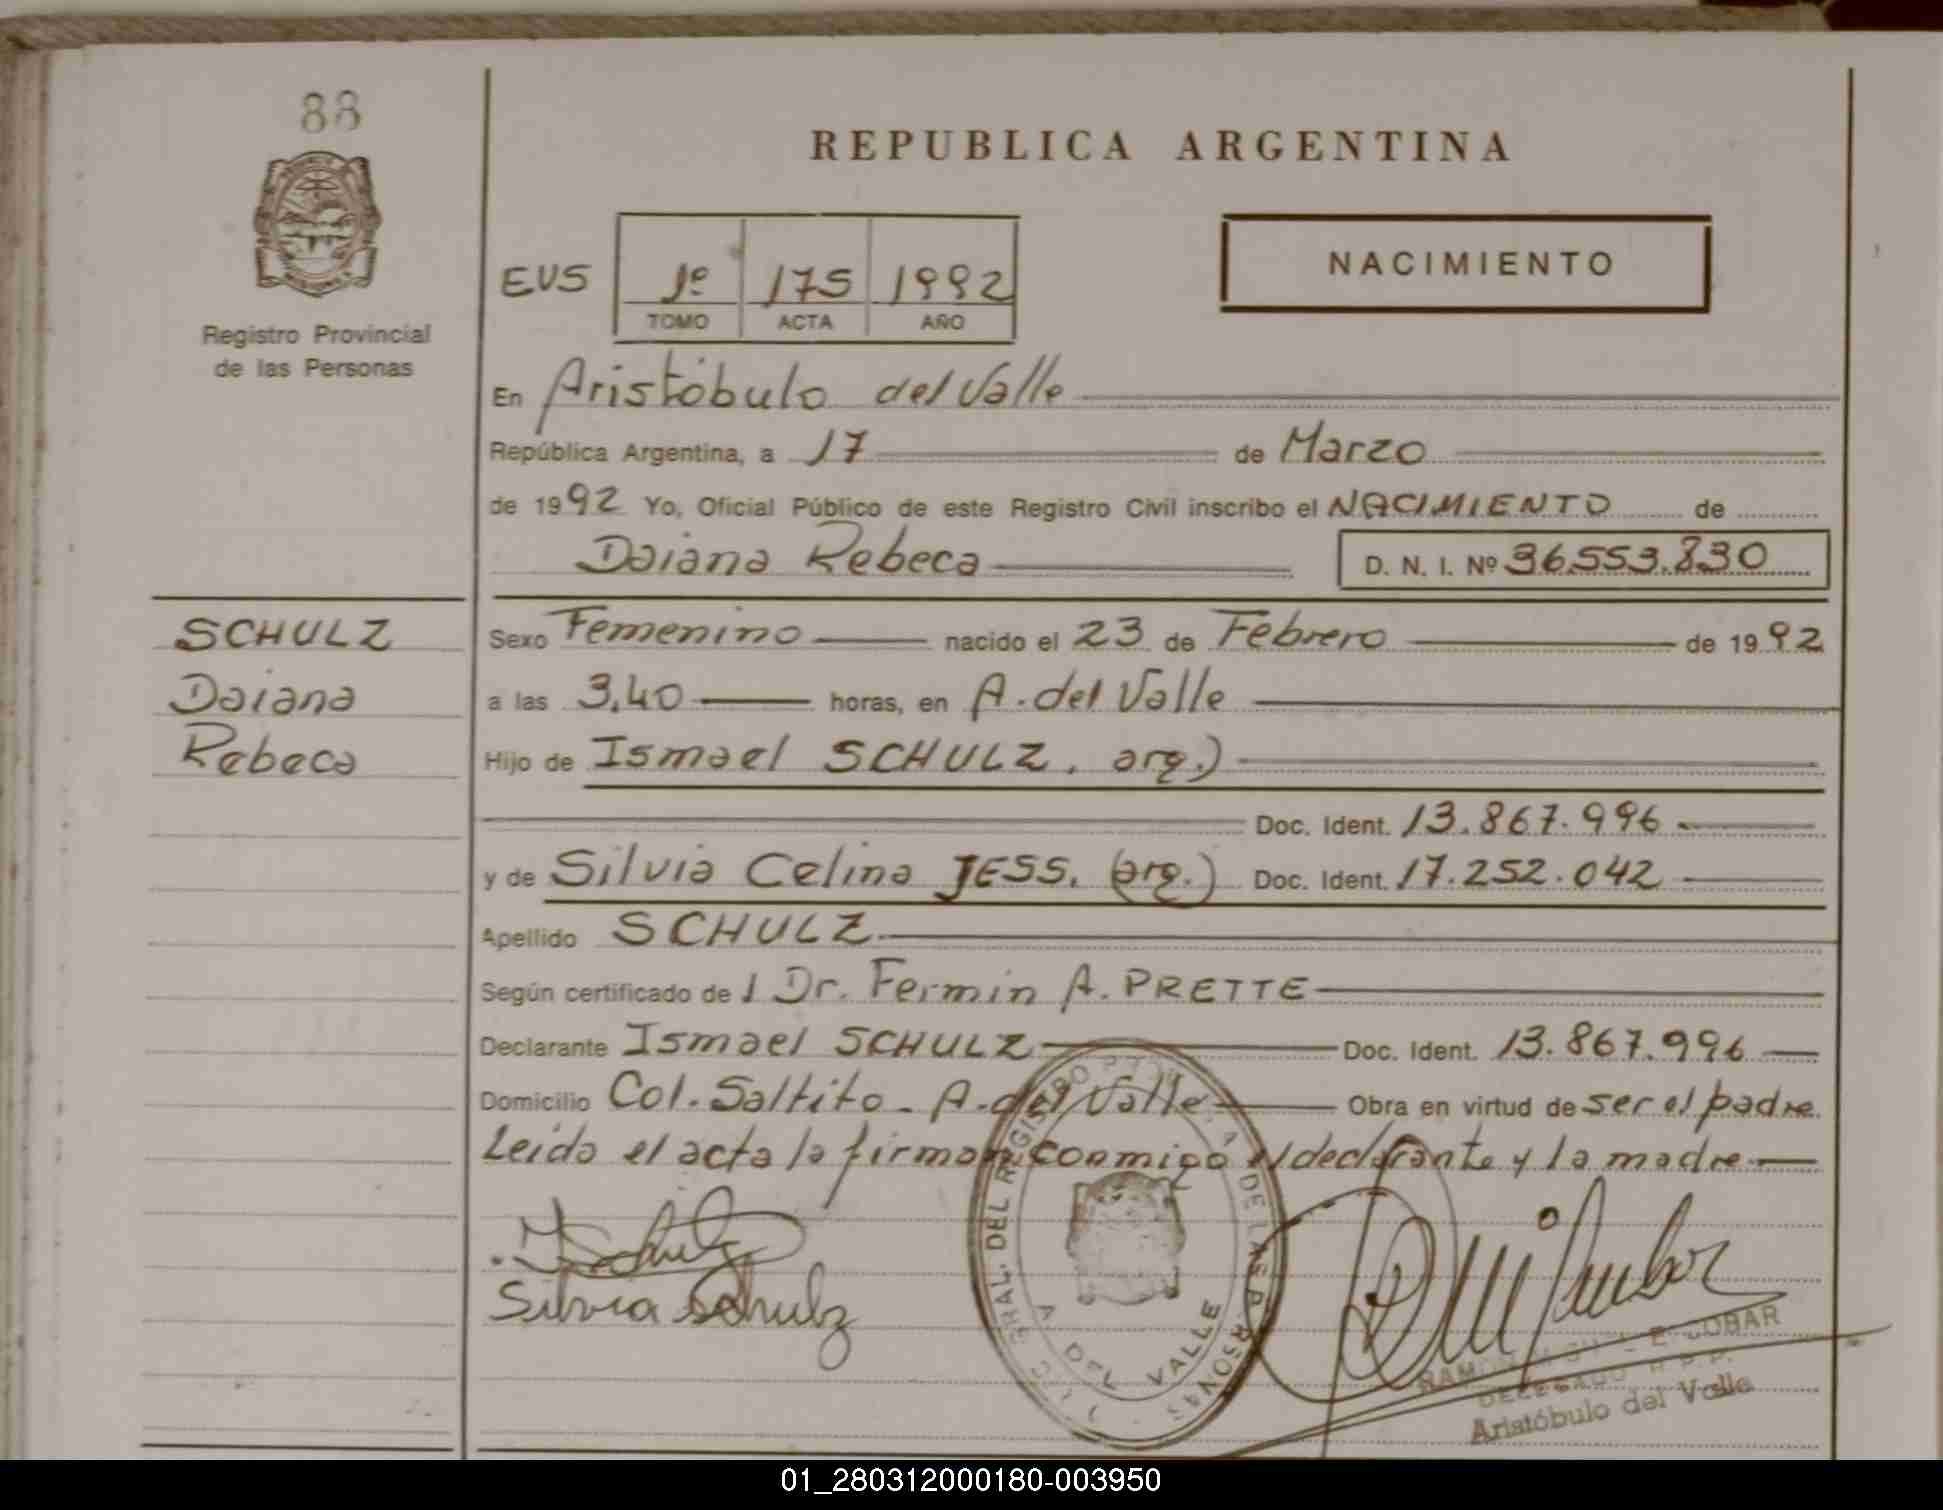 88
REPUBLICA ARGENTINA
NACIMIENTO
EUS 1º 175 1992
TOMO ACTA AÑO
Registro Provincial
de las Personas
En Aristóbulo del Valle
República Argentina, a 17 de Marzo
de 1992 Yo, Oficial Público de este Registro Civil inscribo el NACIMIENTO de
Daiana Rebeca D. N. I. Nº 36.553.830
SCHULZ
Daiana
Rebeca
Sexo Femenino nacido el 23 de Febrero de 1992
a las 3,40 horas, en A. del Valle
Hijo de Ismael SCHULZ, arg.)
Doc. Ident. 13.867.996
y de Silvia Celina JESS. (arg.) Doc. Ident. 17.252.042
Apellido SCHULZ
Según certificado de l Dr. Fermin A. PRETTE
Declarante Ismael SCHULZ Doc. Ident. 13.867.996
Domicilio Col. Saltito - A. del Valle Obra en virtud de ser el padre.
Leida el acta la firman conmigo el declarante y la madre
Schulz
Silvia Schulz
GRAL. DEL REGISTRO
DE LAS
A DEL VALLE
ESCOBAR
DELEGADO R.P.P.
Aristóbulo del Valle
01_280312000180-003950